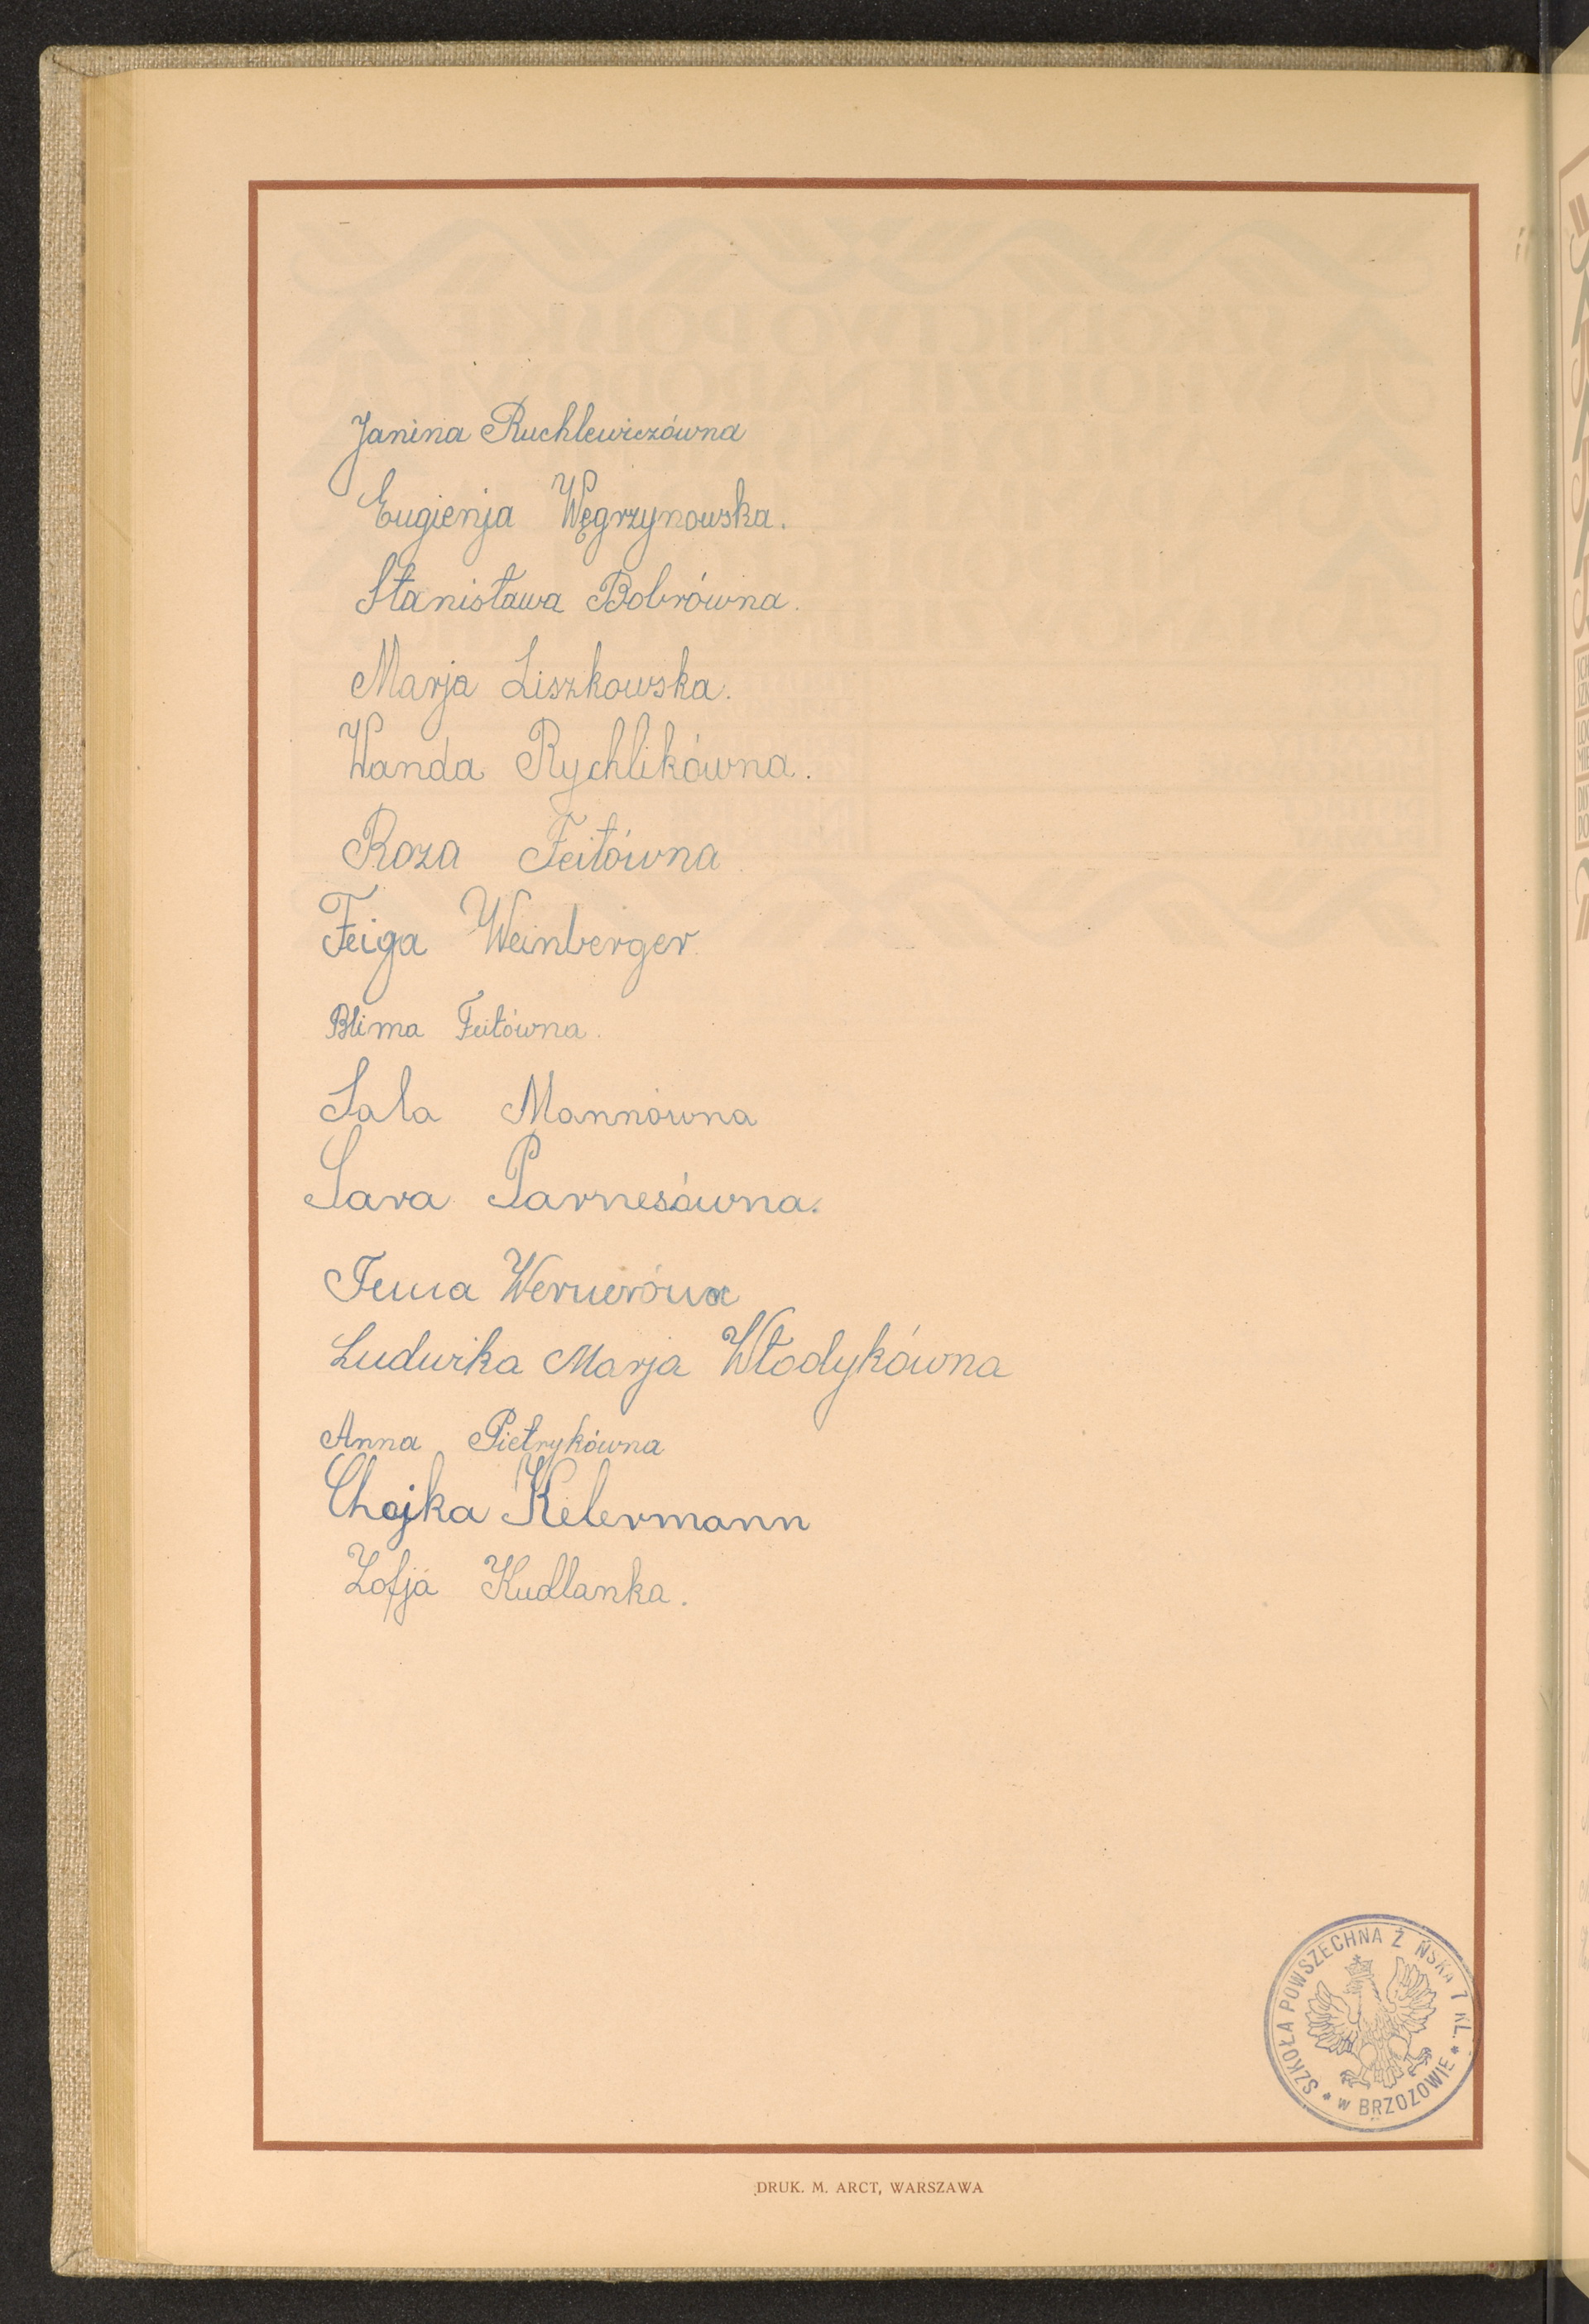 Janina Ruchlewiczówna
Eugienja Węgrzynowska.
Stanisława Bobrówna.
Marja Liszkowska.
Wanda Rychlikówna.
Roza Feitówna
Feiga Weinberger
Blima Feitówna.
Sala Mannówna
Sara Parnesówna.
Ludwika Marja Włodykówna
Anna Pietrykówna
Chajka Kelermann
Zofja Kudlanka.
SZKOŁA POWSZECHNA Ż ŃSKA 7 KL.
* w BRZOZOWIE *
DRUK. M. ARCT, WARSZAWA